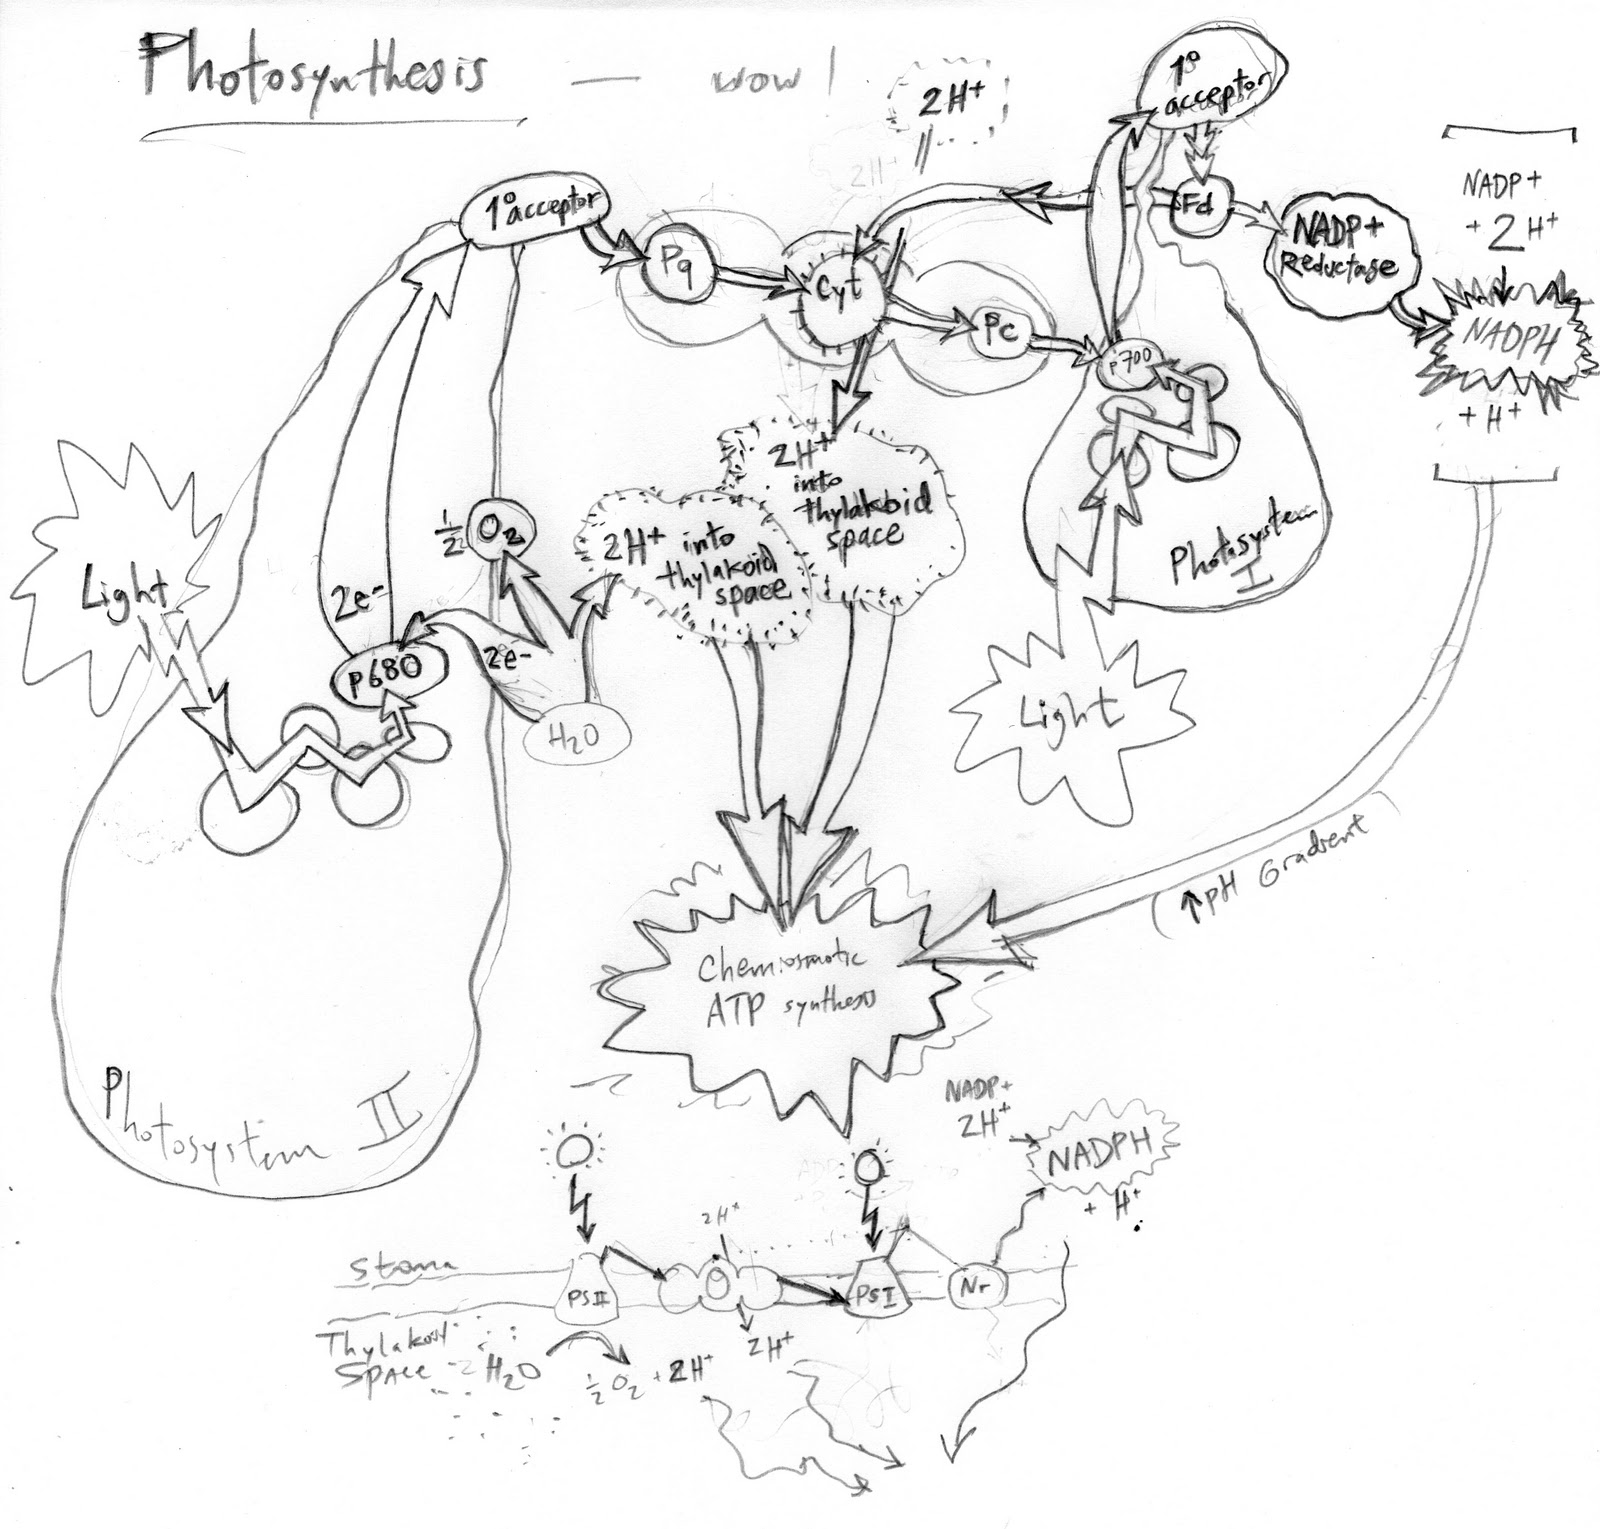 Photosynthesis — wow!
2H+
2H+
1° acceptor
1° acceptor
Pq
Cyt
Pc
P700
Fd
NADP+
Reductase
NADP+
+ 2H+
NADPH
+ H+
Light
2e-
P680
1/2 O2
2e-
H2O
2H+ into
thylakoid
space
2H+
into
thylakoid
space
Photosystem
I
Light
(↑pH Gradient)
Chemiosmotic
ATP synthesis
Photosystem II
NADP+
2H+
NADPH
+ H+
2H+
Stoma
PSII
PSI
Nr
Thylakoid
Space
H2O
1/2 O2 + 2H+
2H+